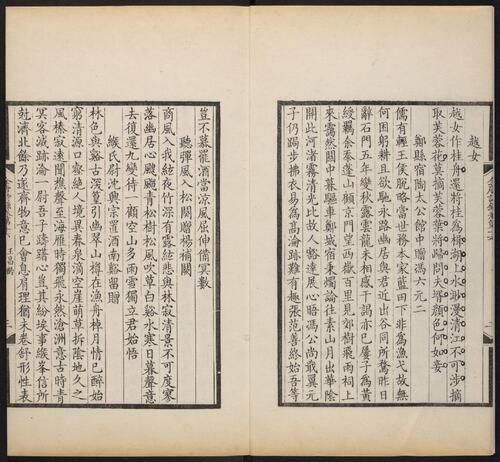 越女
越女作桂舟還將桂為楫湖上水渺漫清江不可涉摘
取芙蓉花莫摘芙蓉葉將歸問夫壻顏色何如妾
鄭縣宿陶太公館中贈馮六元二
儒有輕王侯脫略當世務本家藍田下非為漁弋故無
何困躬耕且欲馳永路幽居與君近出谷同所騖昨日
辭石門五年變秋露雲龍未相感干謁亦已屢子為黃
綬羈余忝蓬山顧京門望西嶽百里見郊樹飛雨祠上
來靄然關中暮驅車鄭城宿秉燭論往素山月出華陰
開此河渚霧清光比故人豁達展心晤馮公尚戢翼元
子仍跼步拂衣易為高淪跡難有趣張范善終始吾等
豈不慕罷酒當涼風屈伸備冥數
聽彈風入松闋贈楊補闕
商風入我絃夜竹深有露絃悲與林寂清景不可度寥
落幽居心颼颼青松樹松風吹草白谿水寒日暮聲意
去復還九變待一顧空山多雨雪獨立君始悟
緱氏尉沈興宗置酒南谿留贈
林色與谿古深篁引幽翠山尊在漁舟棹月情已醉始
窮清源口壑絕人境異春泉滴空崖萌草拆陰地久之
風榛寂遠聞樵聲至海雁時獨飛永然滄洲意古時青
冥客滅跡淪一尉吾子躊躇心豈其紛埃事緱峯信所
尅濟北餘乃遂齊物意已會息肩理猶未卷舒形性表
王昌齡
三